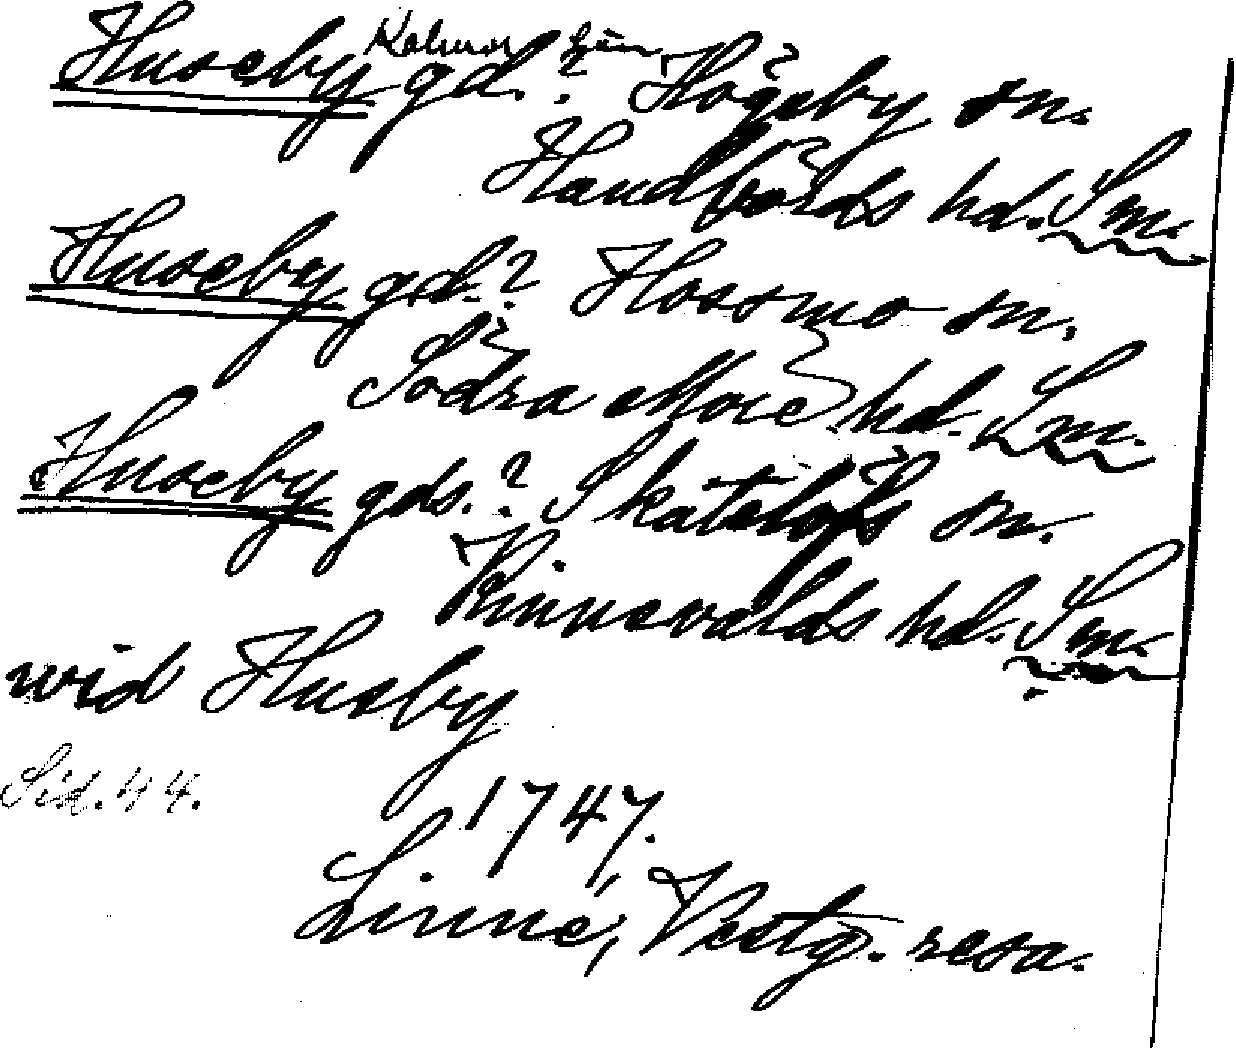 Kalmar län
Huseby gd.? Högsby sn.
Handbörds hd. Sm.
Huseby gd.? Hossmo sn.
Södra Möre hd. Sm.
Huseby gds.? Skatelöfs sn.
Kinnevalds hd. Sm.
wid Husby
Sid. 44.
1747.
Linné, Vestg. resa.